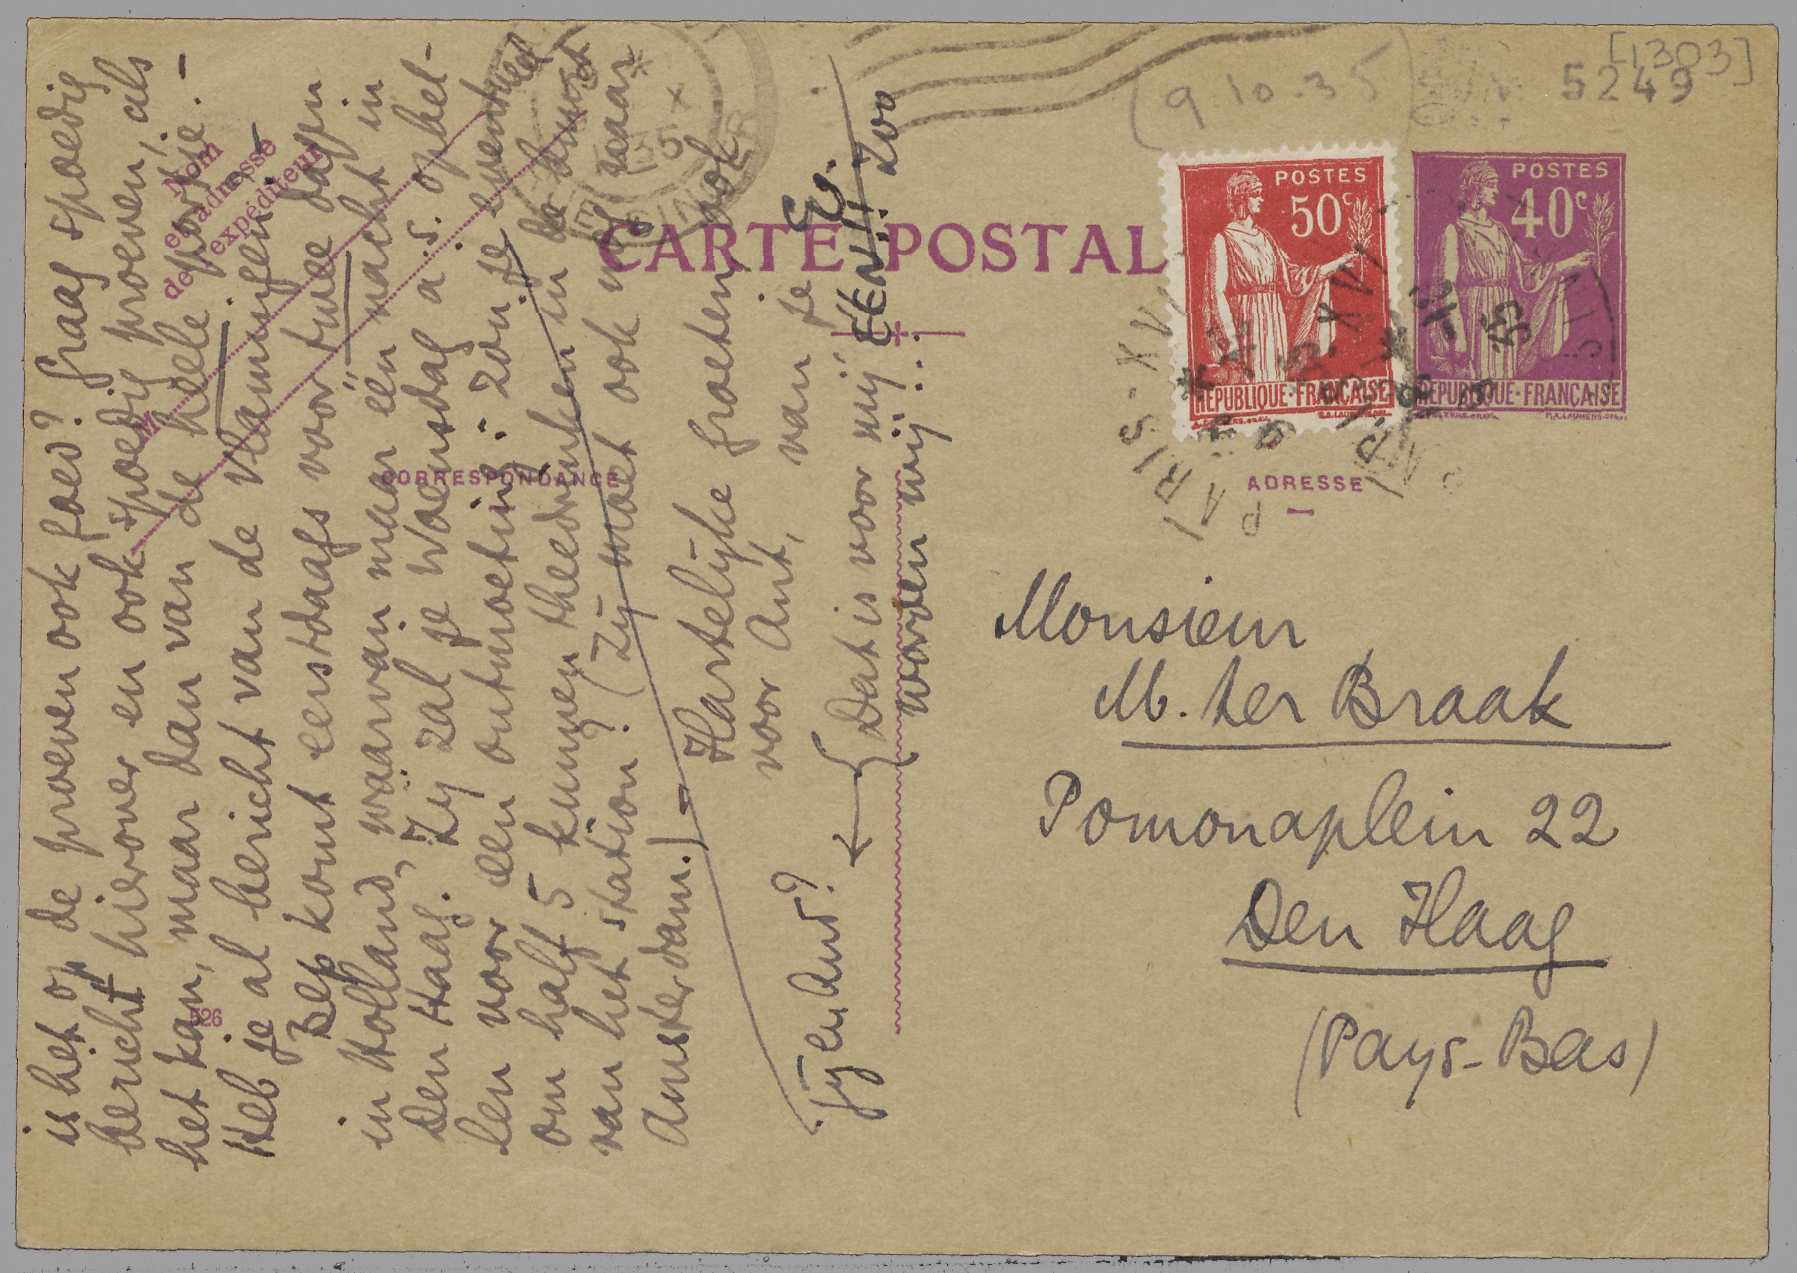 is het op de proeven ook goed? Graag spoedig
bericht hierover en ook spoedig proeven, als
het kan, maar dan van de heele portie. -
Heb je al bericht van de Vlamingen?
Bep komt eerstdaags voor twee dagen
in Holland, waarvan maar één nacht in
Den Haag. Zij zal je Woensdag a.s. opbel-
len voor een ontmoeting: zou je eventueel
om half 5 kunnen theedrinken in de buurt
van het station? (Zij moet ook nog naar
Amsterdam.) -
Hartelijke groeten, ook
voor Ant, van je
E.
Tij en Ant?
Dat is voor mij EEN !! zoo
worden wij...
Nom
et adresse
de l'expéditeur
M
CARTE POSTALE
CORRESPONDANCE
ADRESSE
526
(9.10.35)
[1303]
5249
POSTES
50c
REPUBLIQUE·FRANÇAISE
POSTES
40c
REPUBLIQUE·FRANÇAISE
PARIS-XVI
Monsieur
M. ter Braak
Pomonaplein 22
Den Haag
(Pays-Bas)